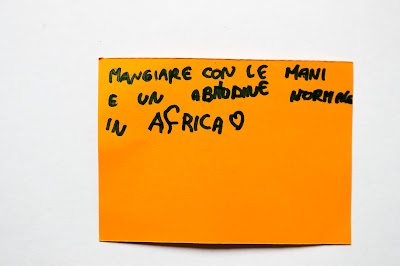 MANGIARE CON LE MANI
E UN ABITUDINE NORMALE
IN AFRICA ♡